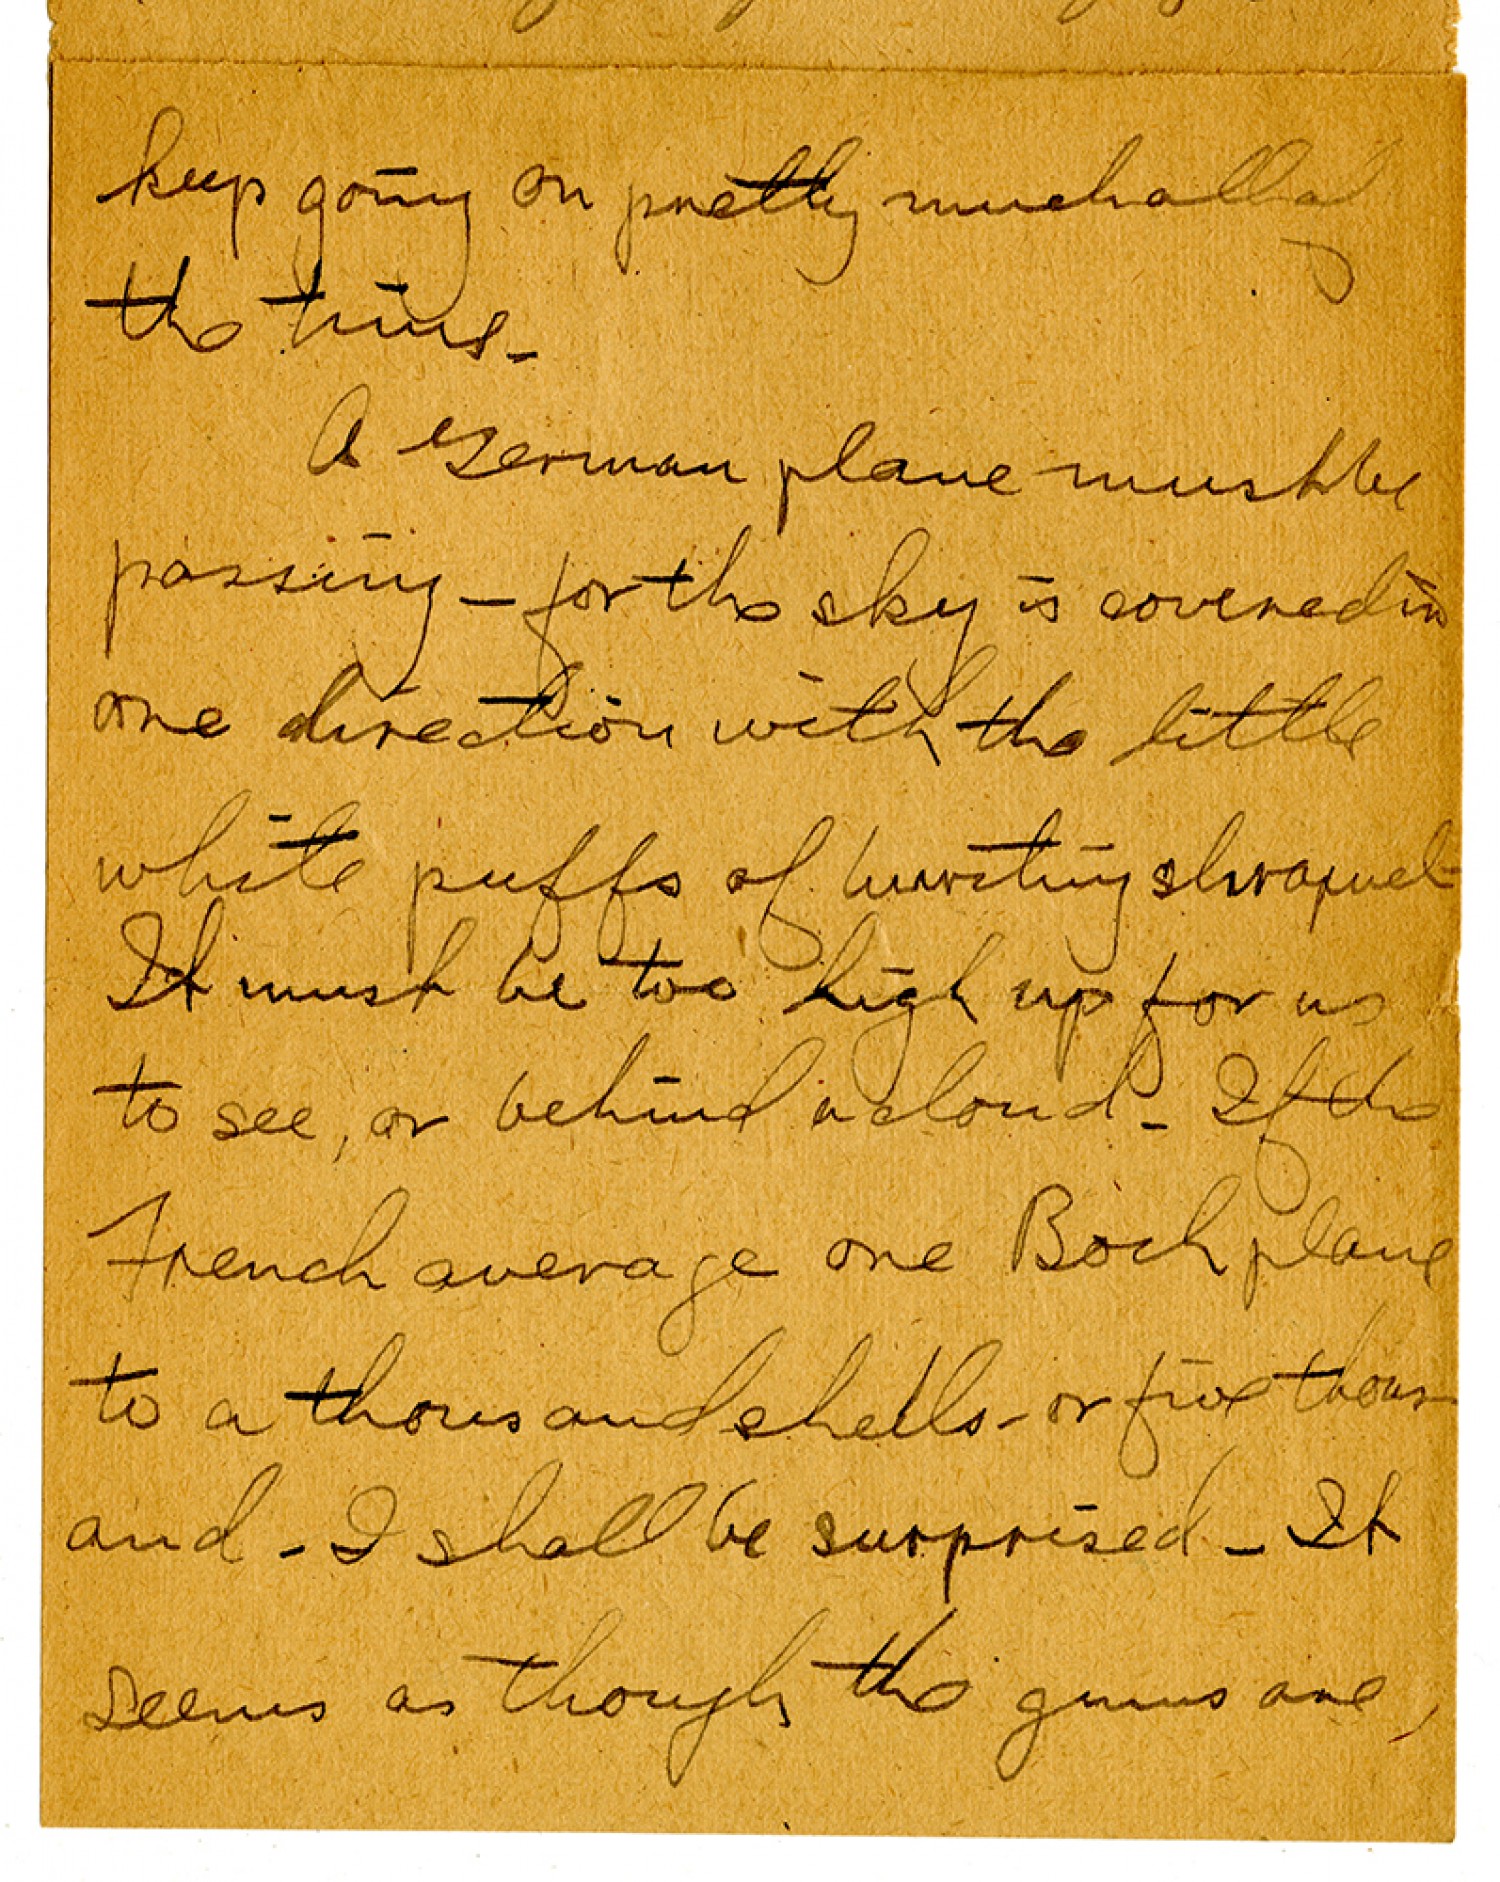 keep going on pretty much all of
the time -
A German plane must be
passing - for the sky is covered in
one direction with the little
white puffs of bursting shrapnel -
It must be too high up for us
to see, or behind a cloud - If the
French average one Boch plane
to a thousand shells - or five thous-
and - I shall be surprised - It
seems as though the guns are,